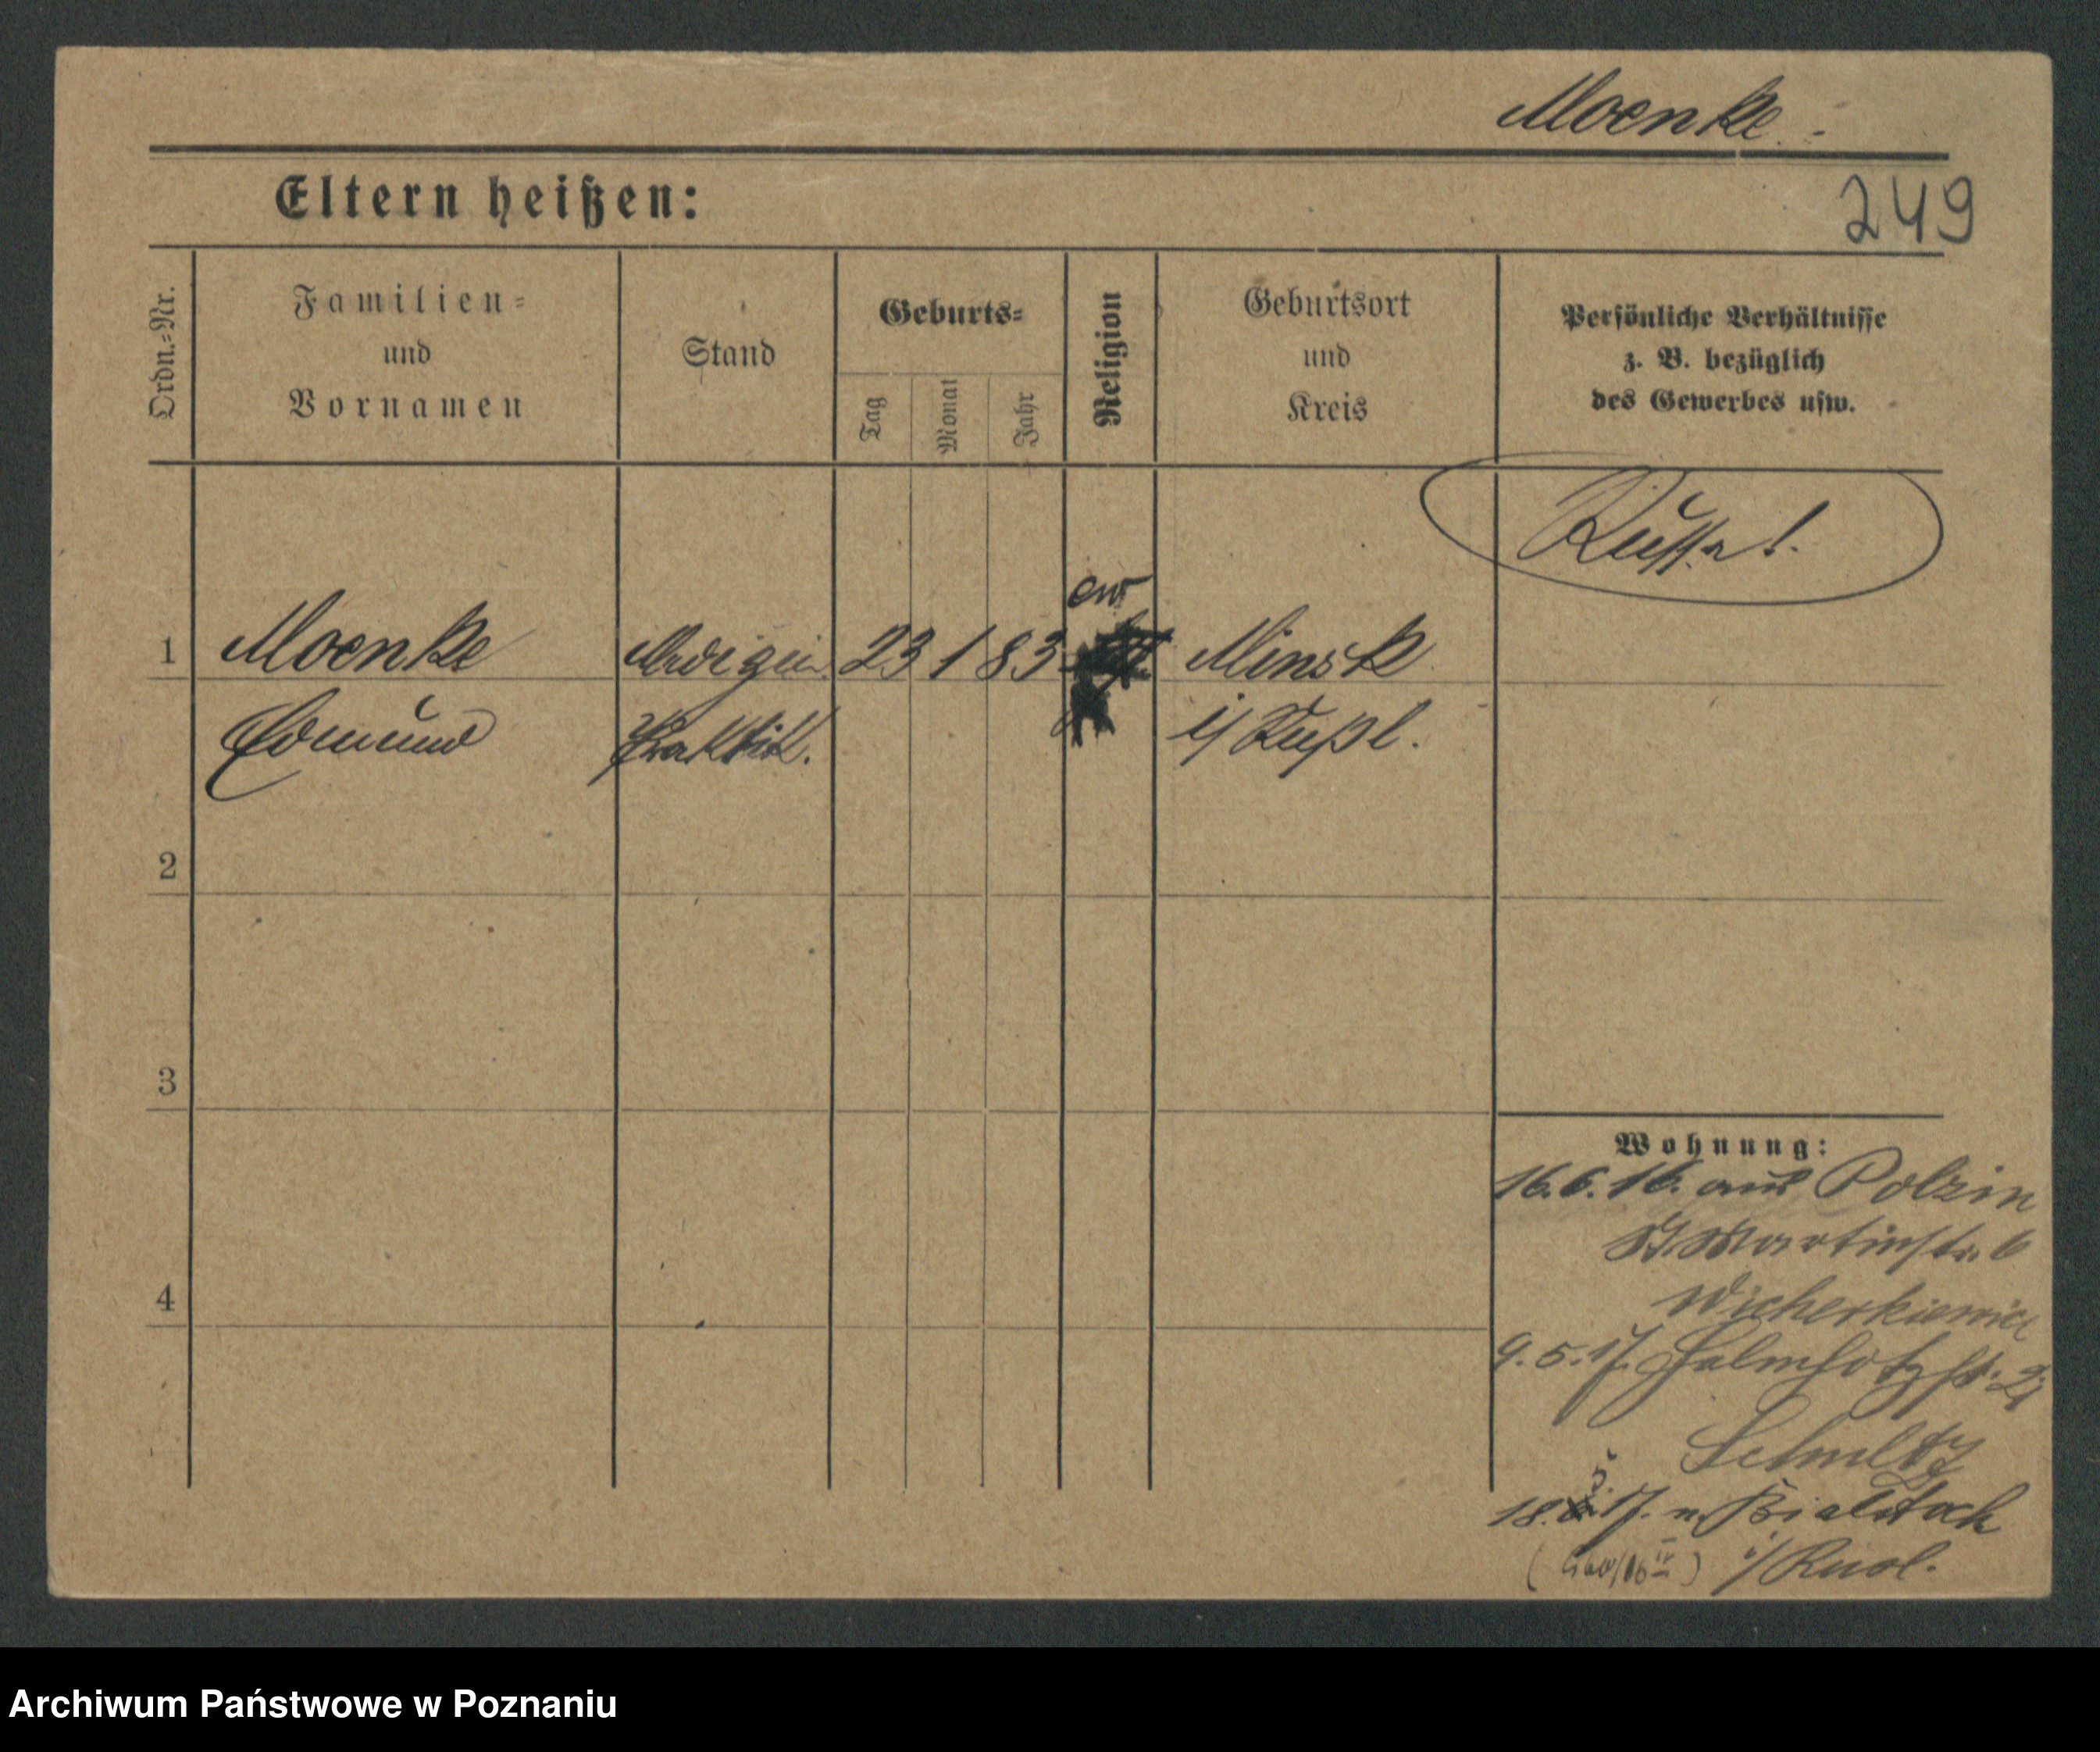 Moenke.
Eltern heißen:
249
Ordn.=Nr.
Familien=
und
Vornamen
Stand
Geburts=
Tag
Monat
Jahr
Religion
Geburtsort
und
Kreis
Persönliche Verhältnisse
z. B. bezüglich
des Gewerbes usw.
Russe!
ev
1 Moenke Medizin. 23 1 83 Minsk
Edmund Praktik. i/Rußl.
2
3
4
Wohnung:
16.6.16. aus Polzin
St. Martinstr. 6
Wicherkiewicz
9.5.17.
Schultz
5.
18. 17. n. Bialistock
i/Rusl.
Archiwum Państwowe w Poznaniu